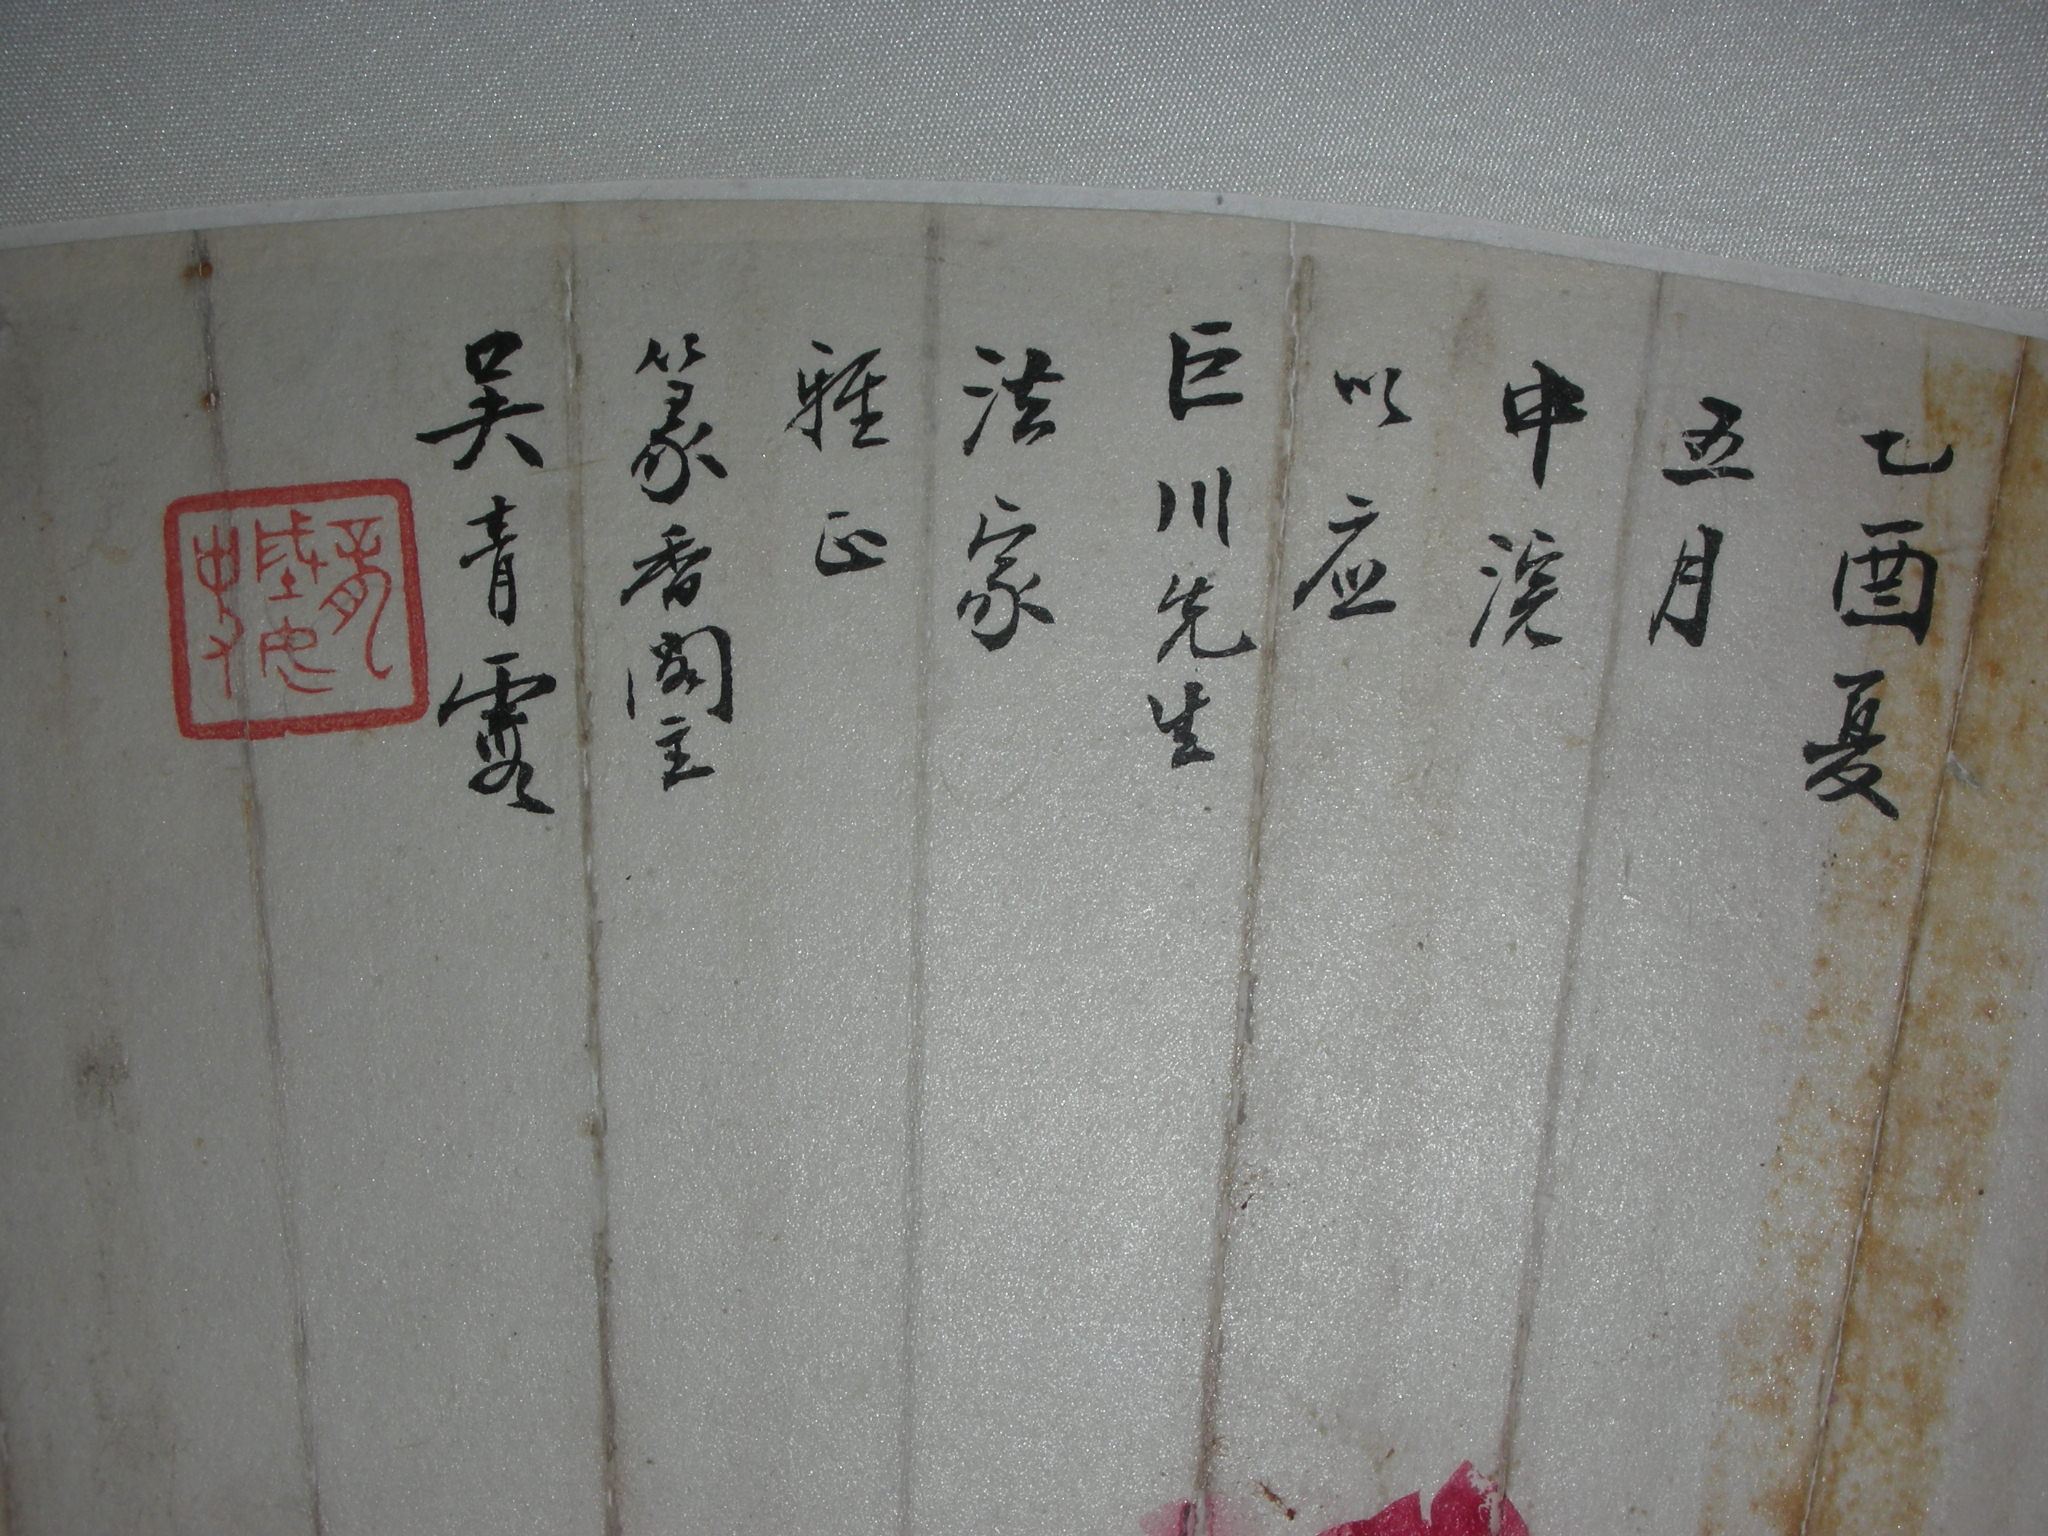 乙酉夏
五月
中浣
以应
巨川先生
法家
雅正
篆香阁主
吴青霞